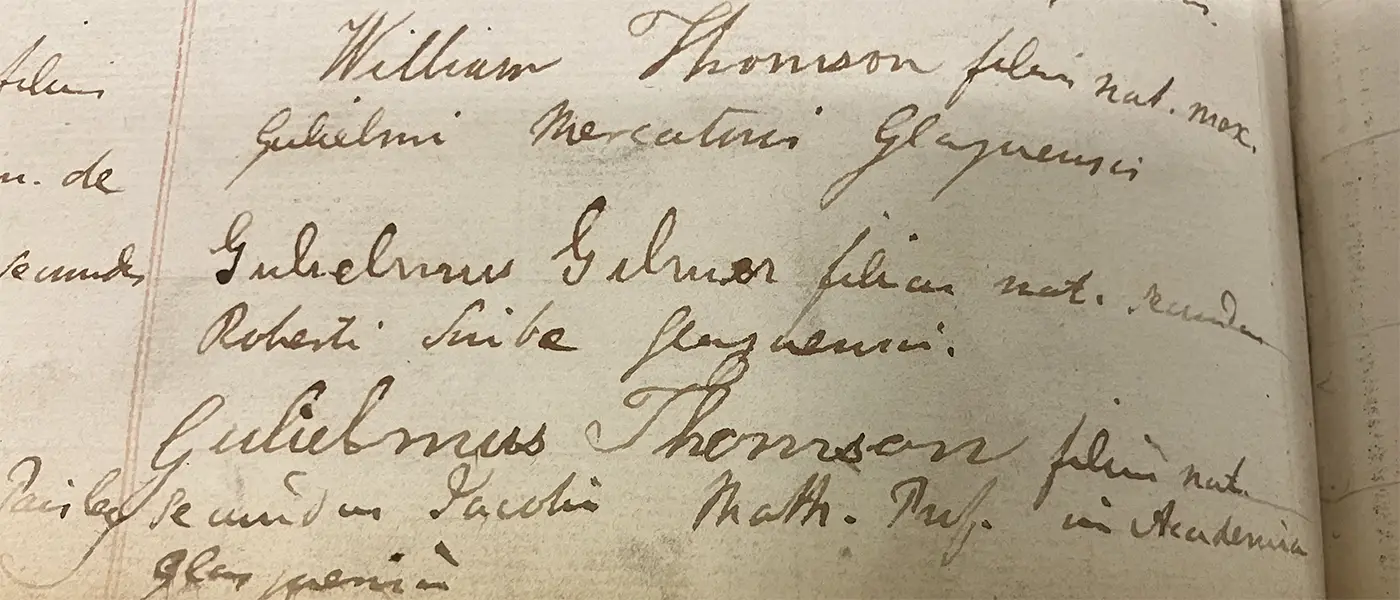 filius
William Thomson filius nat. max.
Gulielmi Mercatoris Glasguensis
n. de
Gulielmus Gilmor filius nat. secundus
secundus
Roberti Scribae Glasguensis.
Gulielmus Thomson filius nat.
Paisley secundus Jacobi Math. Prof. in Academia
Glasguensi